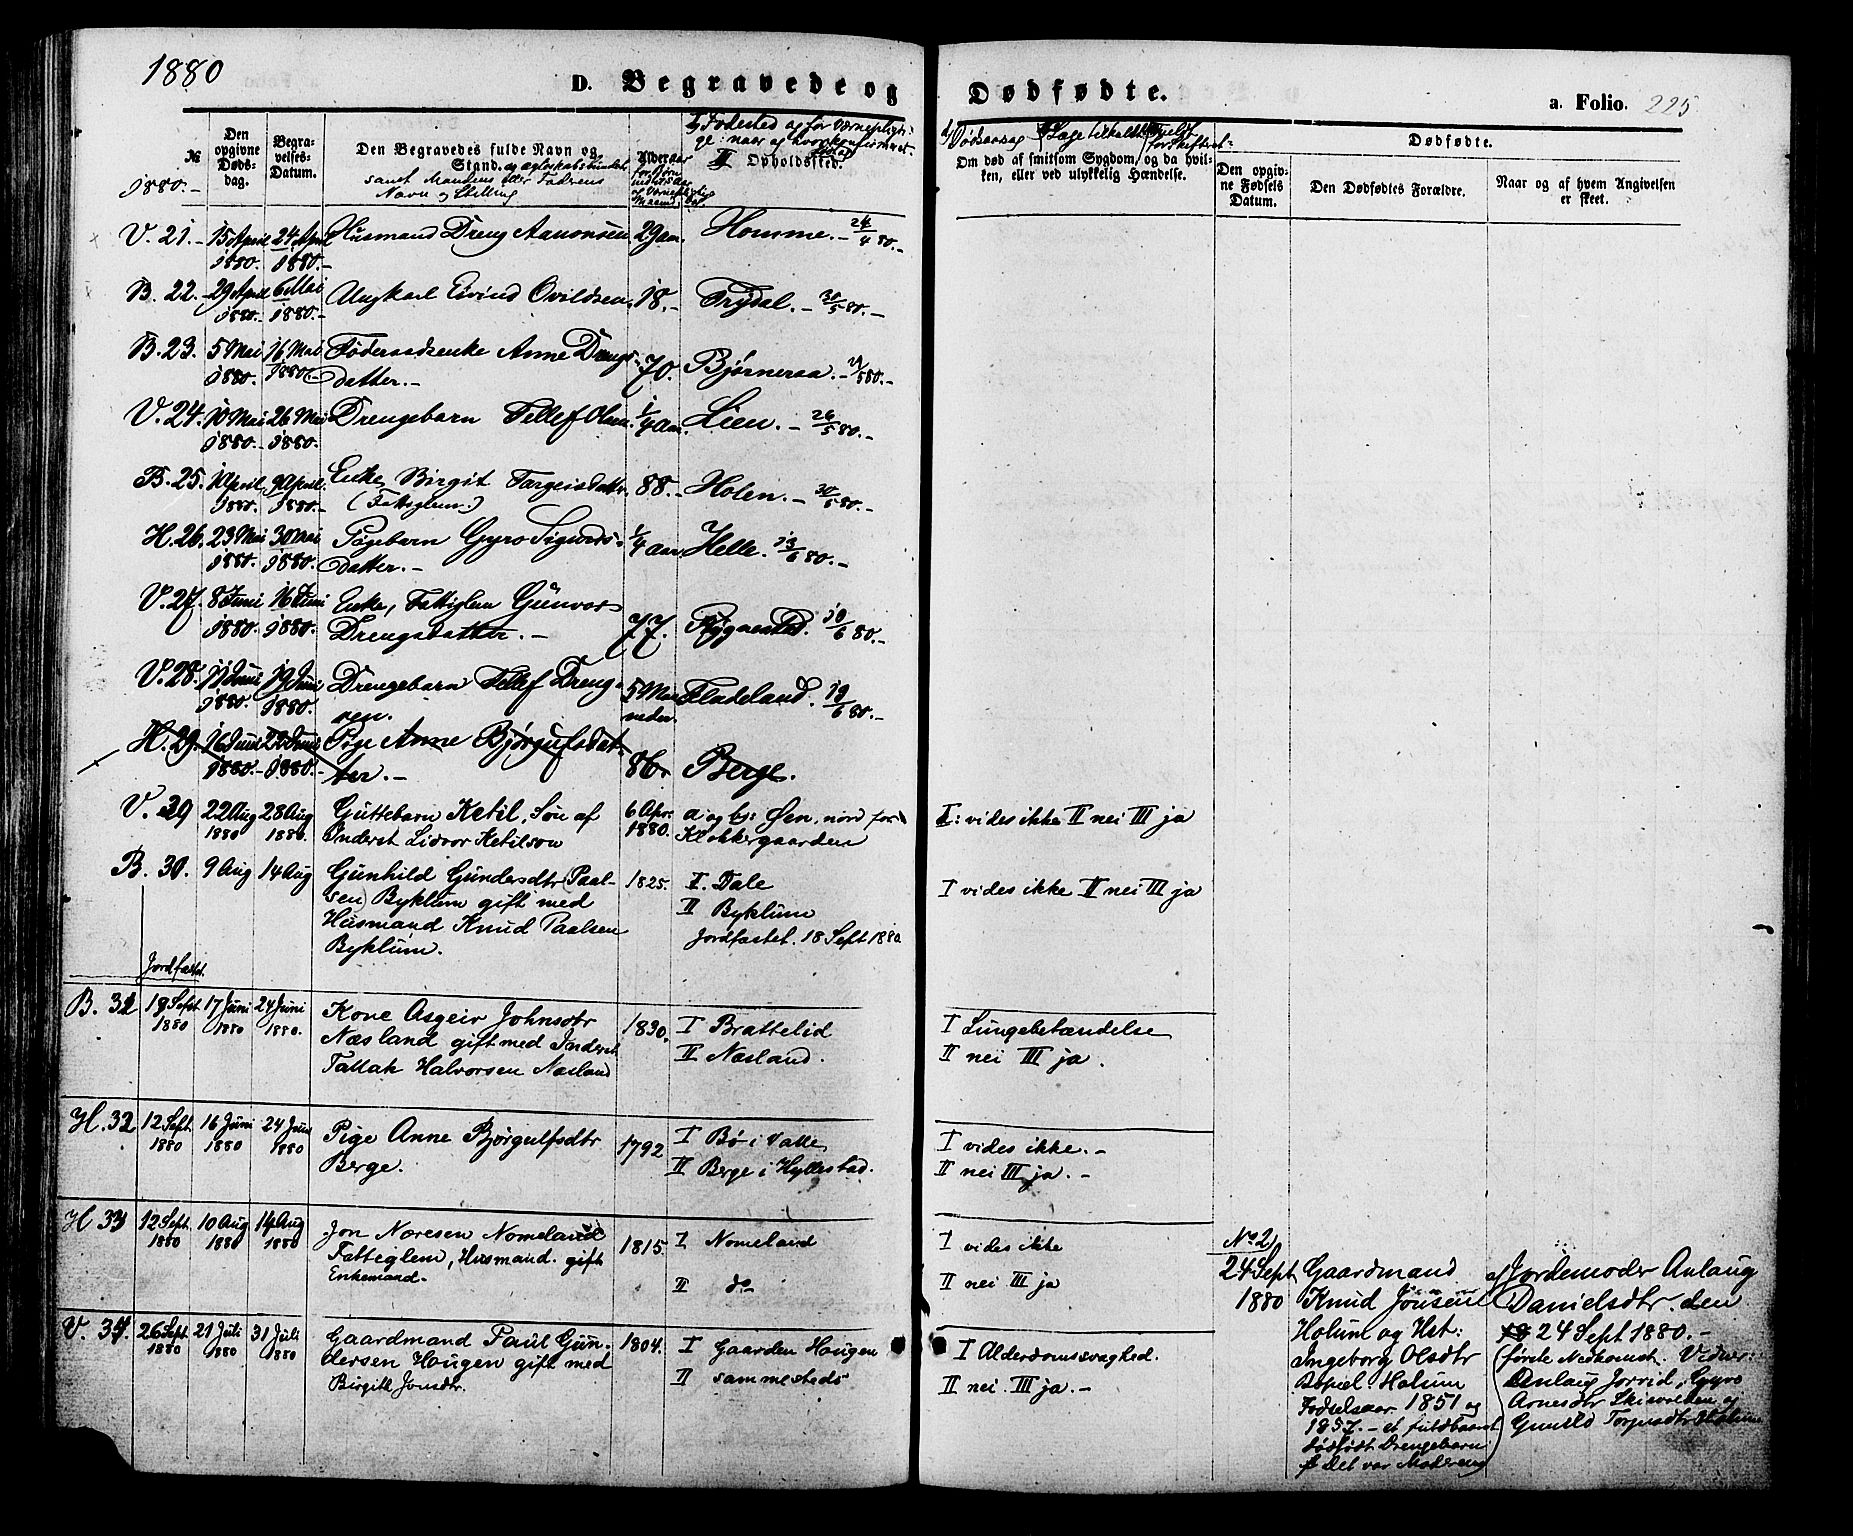 1880
D. Begravede og Dødfødte.
a. Folio. 225
№
1880.-
Den opgivne Døds-dag.
Begra-velses-Datum.
Den Begravedes fulde Navn og
Stand. og Ægteskabs
samt Mandens eller Faderens
Navn og Stilling
I Fødested og for Værnepligti-
ge naar og hvor konfirmeret.
II Opholdssted.
Dødsaarsag
Om død af smitsom Sygdom, og da hvil-
ken, eller ved ulykkelig Hændelse.
Dødfødte.
Den opgiv-
ne Fødsels
Datum.
Den Dødfødtes Forældre.
Naar og af hvem Angivelsen
er skeet.
V. 21.- 15 April 24 April Husmand Dreng Aanonsen 29 aar. Homme.- 24/4 80.-
1880. 1880.-
B. 22.- 29 April 6 Mai Ungkarl Eivind Ovildsen 18.- Trydal.- 30/5 80.-
1880.- 1880.-
B. 23. 5 Mai 16 Mai Føderaadsenke Anne Drengs- 70. Bjørneraa.-
1880. 1880. datter.-
V. 24. 10 Mai 26 Mai Drengebarn Tellef Olsen. 1/4 aar. Lien.- 26/5 80.-
1880.- 1880.
B. 25. 1 April 9 April. Enke Birgit Targeisdatter 88.- Holen.- 30/5 80.-
1880.- 1880.- (Fattiglem.)
H. 26. 23 Mai 30 Mai Pigebarn Gyro Sigurds- 1/4 aar. Helle. 13/6 80.-
1880.- 1880.- datter.-
V. 27. 8 Juni 16 Juni Enke, Fattiglem Gunvor
1880. 1880. Drengsdatter.- 77. Rygnestad. 19/6 80.-
V. 28. 11 Juni 19 Juni Drengebarn Tellef Dreng- 5 Maa- Fladeland. 19/6 80.-
1880. 1880. sen. neder.
H. 29. 16 Juni 24 Juni Pige Anne Bjørgulfsdat-
1880.- 1880.- ter.- 86. Berge.
V. 29 22 Aug 28 Aug Guttebarn Ketil, Søn af 6 Apr. a og b: Øen, nord for I: vides ikke II nei III ja
1880 1880. Inderst Lidvor Ketilson 1880. Klokkergaarden
B. 30. 9 Aug 14 Aug Gunhild Gundersdtr (Paal- 1825. I. Dale I vides ikke II nei III ja
sen) Byklum gift med II Byklum
Husmand Knud Paalsen Jordfæstet. 18 Sept 1880
Byklum.
Jordfæstet.
B. 31 18 Sept 17 Juni 24 Juni Kone Asgeir Johnsdtr 1830. I Brattelid I Lungebetændelse
1880 1880 1880. Næsland gift med Inderst II Næsland. II nei III ja.
Tallak Halvorsen Næsland
H. 32 12 Sept. 16 Juni 24 Juni Pige Anne Bjørgulfsdtr 1792 I Bø i Valle I vides ikke.-
1880 1880 1880 Berge. II Berge i Hyllestad. II nei III ja.-
H 33 12 Sept. 10 Aug 14 Aug Jon Noresen Nomeland 1815. I Nomeland I vides ikke
1880 1880 1880 Fattiglem, Husmand. gift II do II nei III ja
Enkemand.
V. 34. 26 Sept. 21 Juli 31 Juli Gaardmand Paul Gun- 1804. I Gaarden Hougen I Alderdomssvaghed.
1880 1880 1880 dersen Hougen gift med II sammesteds II nei. III ja.-
Birgitt Jonsdtr.
No 2
24 Sept 1880
Gaardmand
Knud Jonsen
Holum og Hst:
Ingeborg Olsdtr
Bopæl. Holum
Fødselsaar 1851 og
1857.- et fuldbaaret
dødfødt Drengebarn
det var Moderens
af Jordemoder Anlaug
Danielsdtr. den
24 Sept 1880.-
første Nedkomst. Vidner:
Anlaug Jorrid, Gyro
Arnesdtr og
Gunild